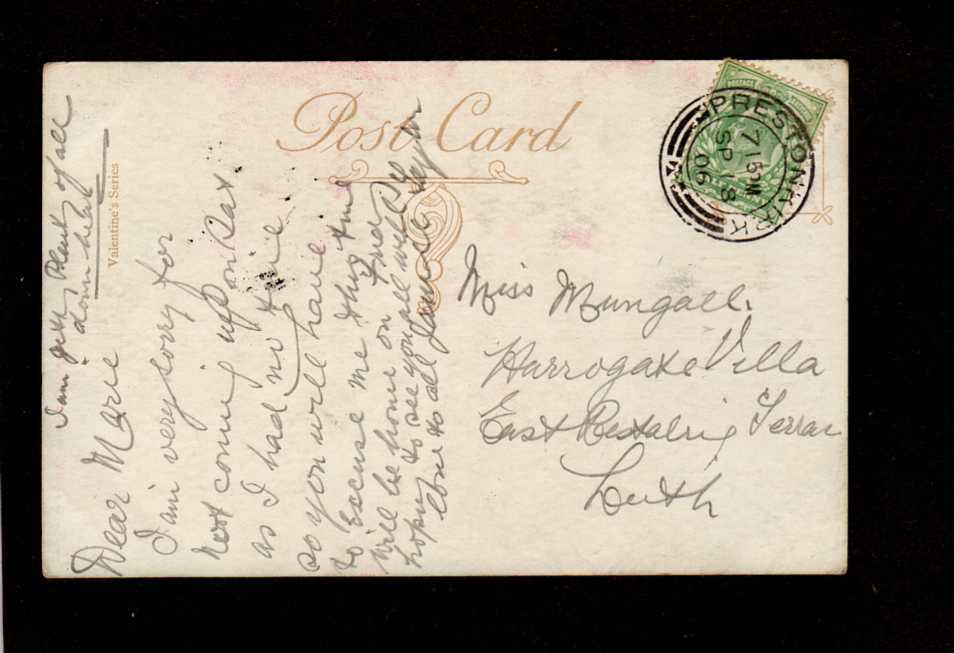 Post Card
Valentine's Series
PRESTONKIRK
7 15 PM
SP 3
06
POSTAGE
Miss Mungall.
Harrogate Villa
East Restalrig Terrac
Leith
Dear Marie
I am very sorry for
not coming up on Sat
as I had no time
so you will have
to Excuse me this time
will be home on Friday
hoping to see you all well
love to all Jamie
I am getting Plenty of all
down here